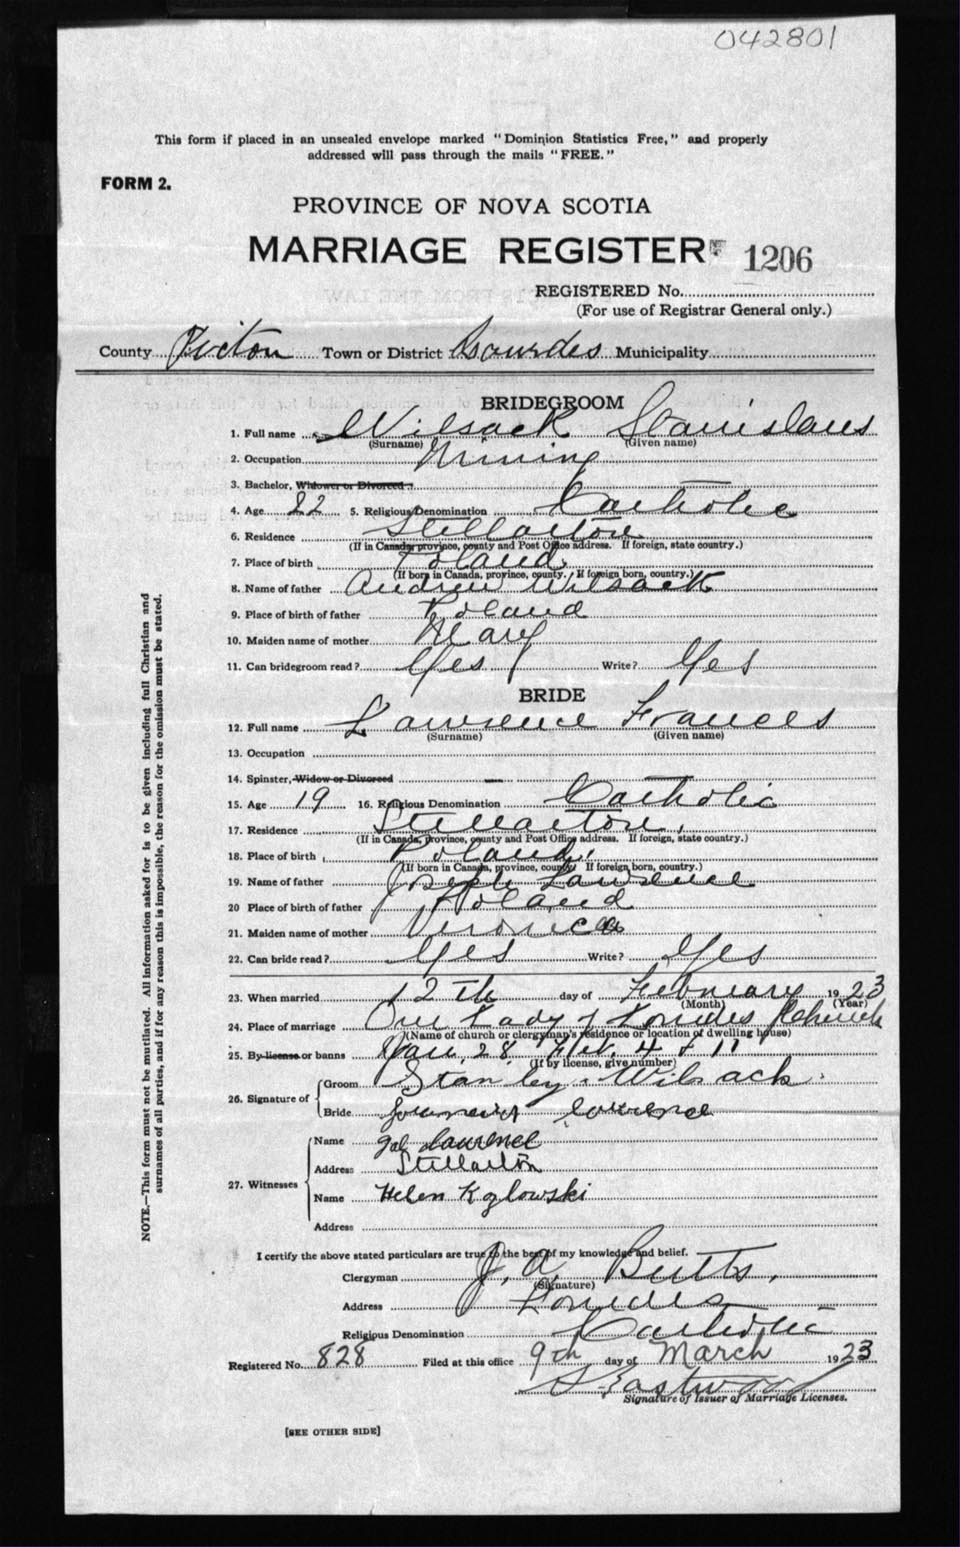 042801
This form if placed in an unsealed envelope marked "Dominion Statistics Free," and properly
addressed will pass through the mails "FREE."
FORM 2.
PROVINCE OF NOVA SCOTIA
MARRIAGE REGISTER 1206
REGISTERED No.
(For use of Registrar General only.)
County Pictou Town or District Lourdes Municipality
BRIDEGROOM
1. Full name Wilsack Stanislaus
(Surname) (Given name)
2. Occupation Mining
3. Bachelor, Widower or Divorced
4. Age 22 5. Religious Denomination Catholic
6. Residence Stellarton
(If in Canada, province, county and Post Office address. If foreign, state country.)
7. Place of birth Poland
(If born in Canada, province, county. If foreign born, country.)
8. Name of father Andrew Wilsack
9. Place of birth of father Poland
10. Maiden name of mother Mary
11. Can bridegroom read? Yes Write? Yes
BRIDE
12. Full name Lawrence Frances
(Surname) (Given name)
13. Occupation
14. Spinster, Widow or Divorced —
15. Age 19 16. Religious Denomination Catholic
17. Residence Stellarton,
(If in Canada, province, county and Post Office address. If foreign, state country.)
18. Place of birth Poland,
(If born in Canada, province, county If foreign born, country.)
19. Name of father Joseph Lawrence
20 Place of birth of father Poland
21. Maiden name of mother Veronica
22. Can bride read? Yes Write? Yes
23. When married 12th day of February 1923
(Month) (Year)
24. Place of marriage Our Lady of Lourdes Church
(Name of church or clergyman's residence or location of dwelling house)
25. By license or banns Jan. 28 4 & 11
(If by license, give number)
26. Signature of Groom Stanley Wilsack
Bride lawrence
27. Witnesses Name Lawrence
Address Stellarton
Name Helen Kozlowski
Address
I certify the above stated particulars are true to the best of my knowledge and belief.
Clergyman J. A. Butts,
(Signature)
Address Lourdes
Religious Denomination Catholic
Registered No. 828 Filed at this office 9th day of March 1923
Eastwood
Signature of Issuer of Marriage Licenses.
[SEE OTHER SIDE]
NOTE.—This form must not be mutilated. All information asked for is to be given including full Christian and
surnames of all parties, and if for any reason this is impossible, the reason for the omission must be stated.